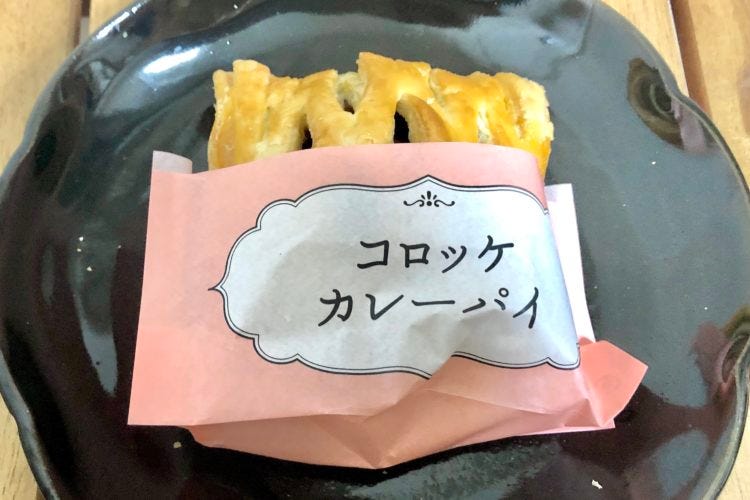 コロッケ
カレーパイ